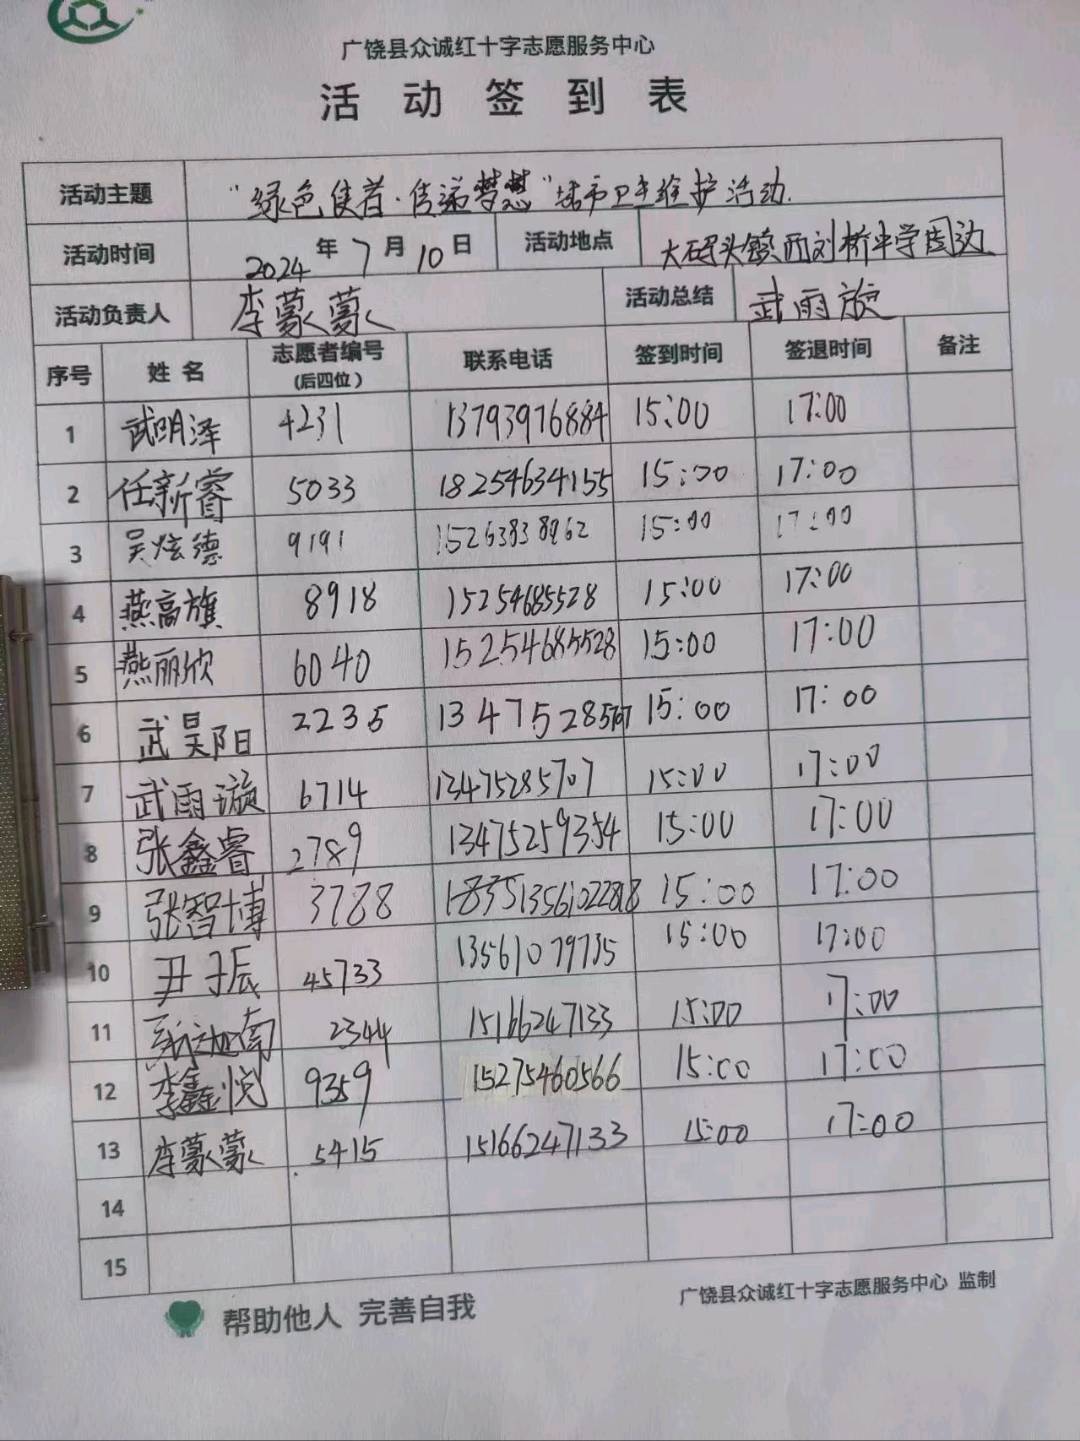 广饶县众诚红十字志愿服务中心
活动签到表
活动主题 “绿色使者·传递梦想”城市卫生维护活动.
活动时间 2024年7月10日 活动地点 大码头镇西刘桥中学周边
活动负责人 李蒙蒙 活动总结 武雨旋
序号 姓名 志愿者编号 联系电话 签到时间 签退时间 备注
(后四位)
1 武明泽 4231 13793976884 15:00 17:00
2 任新睿 5033 18254634155 15:00 17:00
3 吴炫德 9191 15263838962 15:00 17:00
4 燕高旗 8918 15254685528 15:00 17:00
5 燕丽欣 6040 15254685528 15:00 17:00
6 武昊阳 2235 13475285707 15:00 17:00
7 武雨漩 6714 13475285707 15:00 17:00
8 张鑫睿 2789 13475259354 15:00 17:00
9 张智博 3788 15:00 17:00
10 尹子辰 45733 13561079735 15:00 17:00
11 2344 15166247133 15:00 17:00
12 李鑫悦 9359 15275460566 15:00 17:00
13 李蒙蒙 5415 15166247133 15:00 17:00
14
15
帮助他人 完善自我
广饶县众诚红十字志愿服务中心 监制